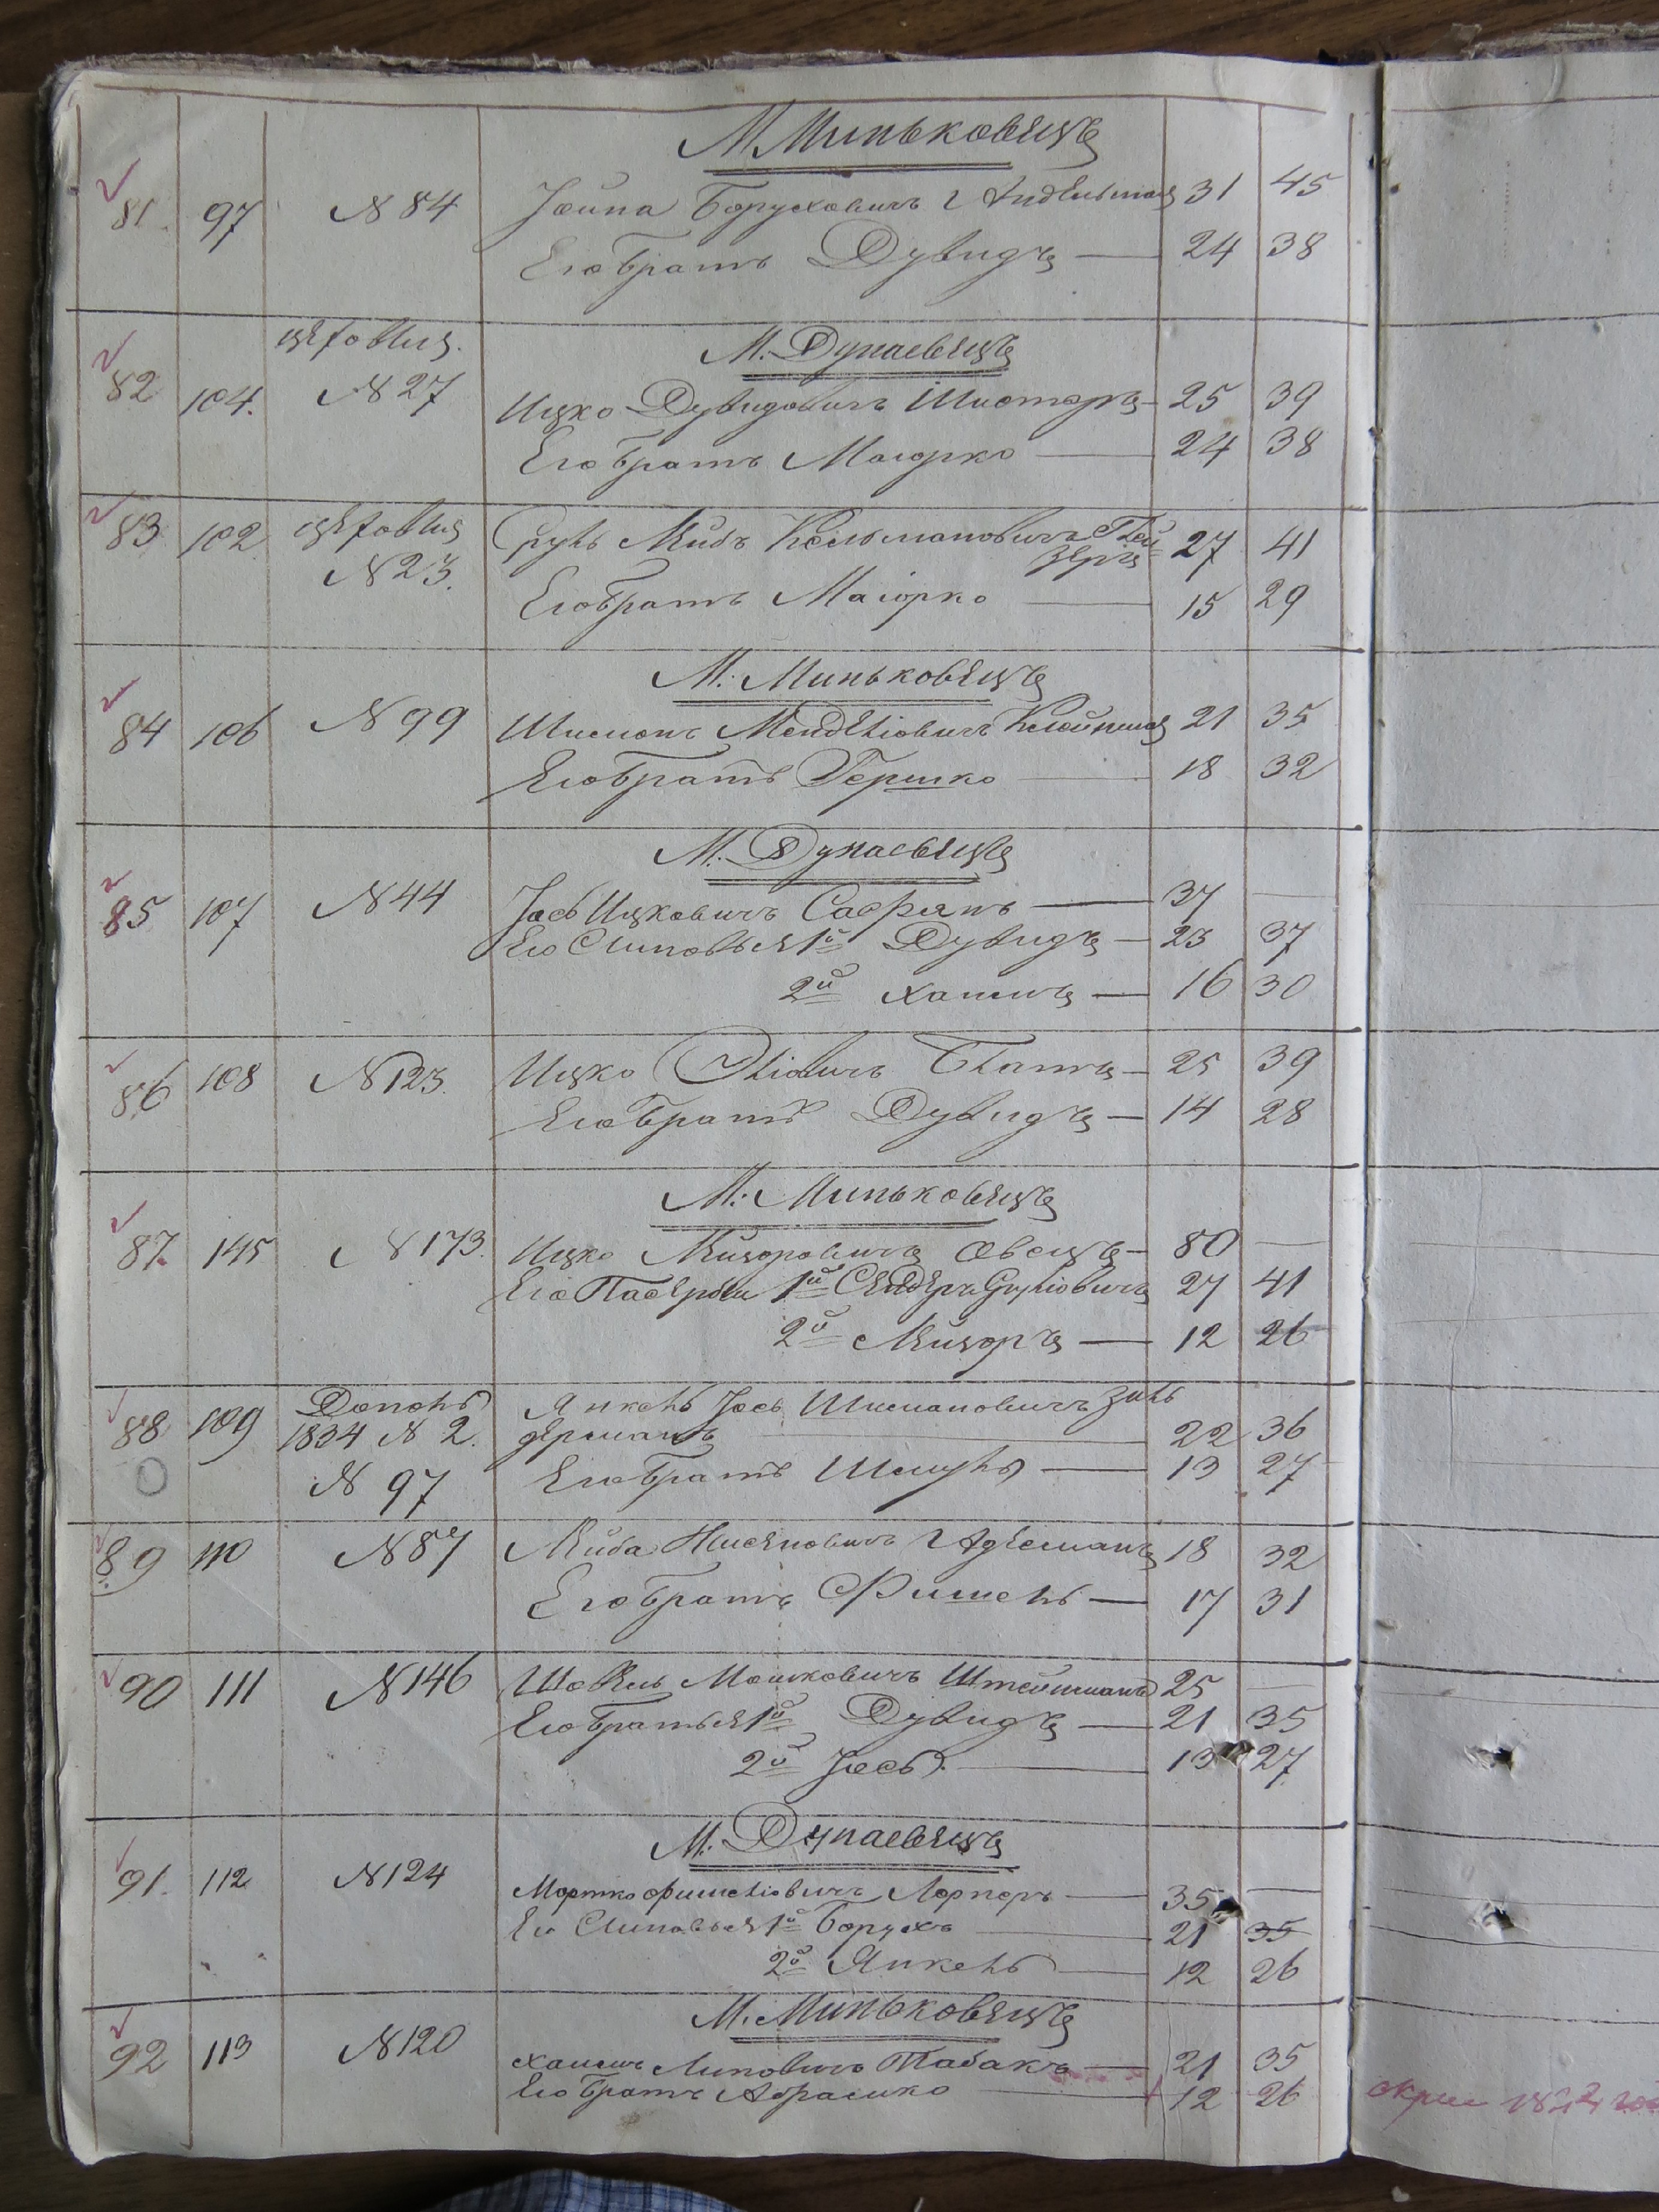 М. Миньковецъ
81 97 N 84 Іойна Боруховичъ Гандельманъ 31 45
Его братъ Дувидъ — 24 38
М. Дунаевецъ
82 104. N 27 Ицко Дувидовичъ Шистеръ — 25 39
Его братъ Маіорко — 24 38
83 102 Сруль Лейбъ Кельмановичъ 27 41
N 23.
Его братъ Маіорко — 15 29
М. Миньковецъ
84 106 N 99 Шимонъ Менделіовичъ Клейнманъ 21 35
Его братъ Гершко — 18 32
М. Дунаевецъ
85 107 N 44 Іось Ицковичъ Сафьянъ — 37 —
Его Синовья 1й Дувидъ — 23 37
2й Хаимъ — 16 30
86 108 N 123. Ицко Эліовичъ — 25 39
Его братъ Дувидъ — 14 28
М. Миньковецъ
87. 145 N 173. Ицко Лейзоровичъ Овецъ — 80 —
Его 1й Сендеръ Сруліовичъ 27 41
2й Лейзоръ — 12 26
88 109 Допол. Янкель Іось Шимановичъ Зиль
1834 N 2. дерманъ — 22 36
N 97 Его братъ Шмуль — 13 27
89 110 N 87 Лейба Нисеновичъ Гдѣсманъ 18 32
Его братъ Фишель — 17 31
90 111 N 146 Мошковичъ Штейнманъ 25 —
Его братья 1й Дувидъ — 21 35
2й Іось — 13 27
М. Дунаевецъ
91. 112 N 124 Мортко Фишеліовичъ Лернеръ — 35 —
Его Синовья 1й Борухъ — 21 35
2й Янкель — 12 26
М. Миньковецъ
92 113 N 120 Хаимъ Липовичъ Табакъ — 21 35
Его братъ Абрамко — 12 26